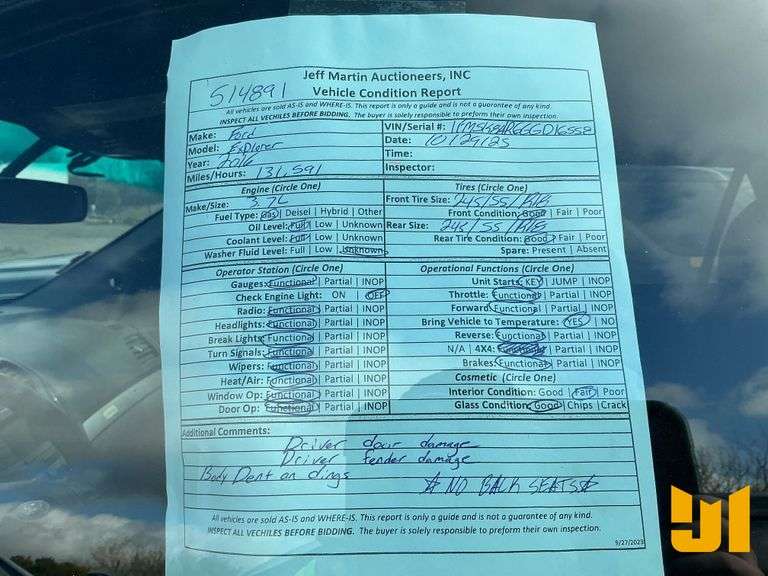 Jeff Martin Auctioneers, INC
514891 Vehicle Condition Report
All vehicles are sold AS-IS and WHERE-IS. This report is only a guide and is not a guarantee of any kind.
INSPECT ALL VECHILES BEFORE BIDDING. The buyer is solely responsible to preform their own inspection.
Make: Ford VIN/Serial #:
Model: Explorer Date: 10/29/25
Year: 2016 Time:
Miles/Hours: 131,591 Inspector:
Engine (Circle One) Tires (Circle One)
Make/Size: 3.7L Front Tire Size: 245/55/R18
Fuel Type: Gas | Deisel | Hybrid | Other Front Condition: Good | Fair | Poor
Oil Level: Full | Low | Unknown Rear Size: 245/55/R18
Coolant Level: Full | Low | Unknown Rear Tire Condition: Good | Fair | Poor
Washer Fluid Level: Full | Low | Unknown Spare: Present | Absent
Operator Station (Circle One) Operational Functions (Circle One)
Gauges: Functional | Partial | INOP Unit Starts: KEY | JUMP | INOP
Check Engine Light: ON | OFF Throttle: Functional | Partial | INOP
Radio: Functional | Partial | INOP Forward: Functional | Partial | INOP
Headlights: Functional | Partial | INOP Bring Vehicle to Temperature: YES | NO
Break Lights: Functional | Partial | INOP Reverse: Functional | Partial | INOP
Turn Signals: Functional | Partial | INOP N/A | 4X4: Functional | Partial | INOP
Wipers: Functional | Partial | INOP Brakes: Functional | Partial | INOP
Heat/Air: Functional | Partial | INOP Cosmetic (Circle One)
Window Op: Functional | Partial | INOP Interior Condition: Good | Fair | Poor
Door Op: Functional | Partial | INOP Glass Condition: Good | Chips | Crack
Additional Comments:
Driver door damage
Driver fender damage
Body Dent an dings ☆ NO BACK SEATS☆
All vehicles are sold AS-IS and WHERE-IS. This report is only a guide and is not a guarantee of any kind.
INSPECT ALL VECHILES BEFORE BIDDING. The buyer is solely responsible to preform their own inspection.
9/27/2023